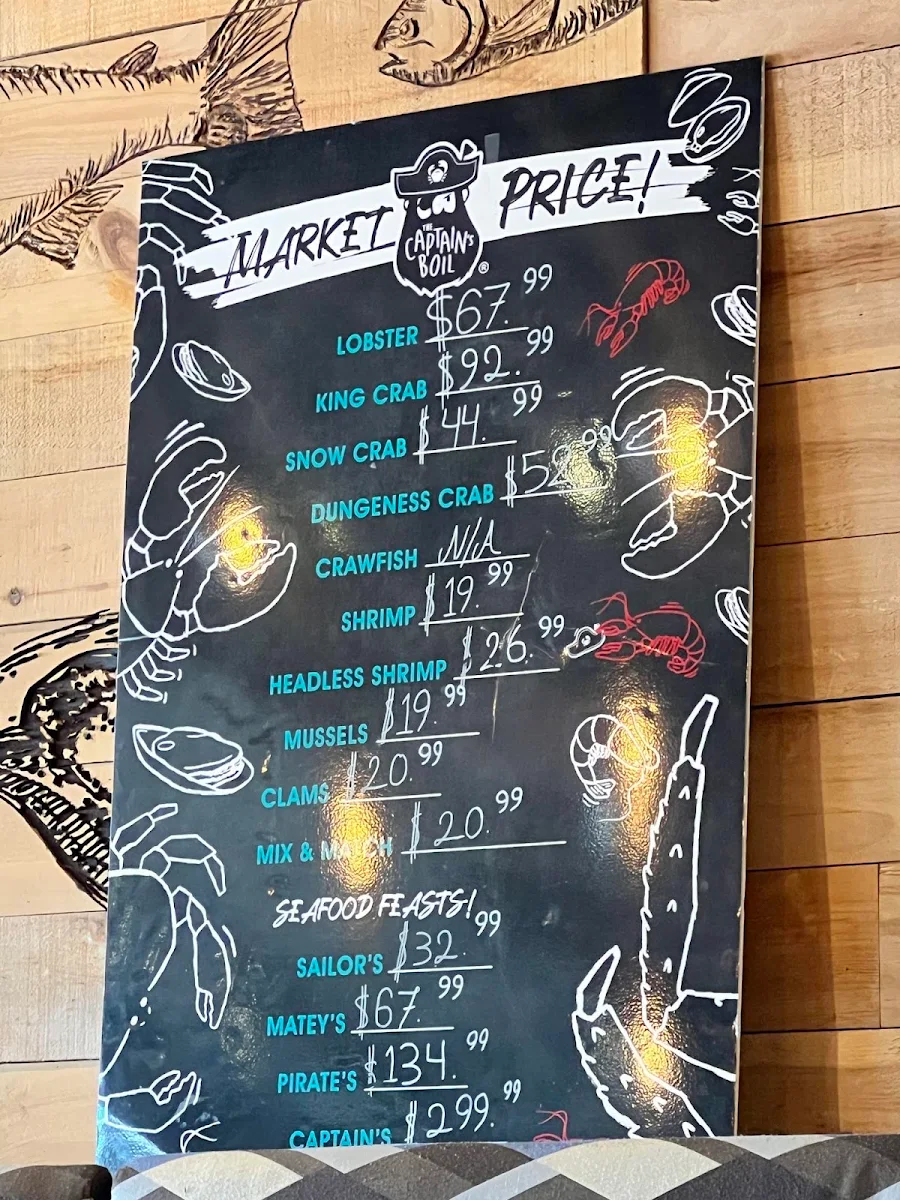 MARKET PRICE!
THE
CAPTAIN'S
BOIL ®
LOBSTER $67.99
KING CRAB $92.99
SNOW CRAB $44.99
DUNGENESS CRAB
CRAWFISH N/A
SHRIMP $19.99
HEADLESS SHRIMP $26.99
MUSSELS $19.99
CLAMS $20.99
MIX & MATCH $20.99
SEAFOOD FEASTS!
SAILOR'S $32.99
MATEY'S $67.99
PIRATE'S $134.99
CAPTAIN'S $299.99